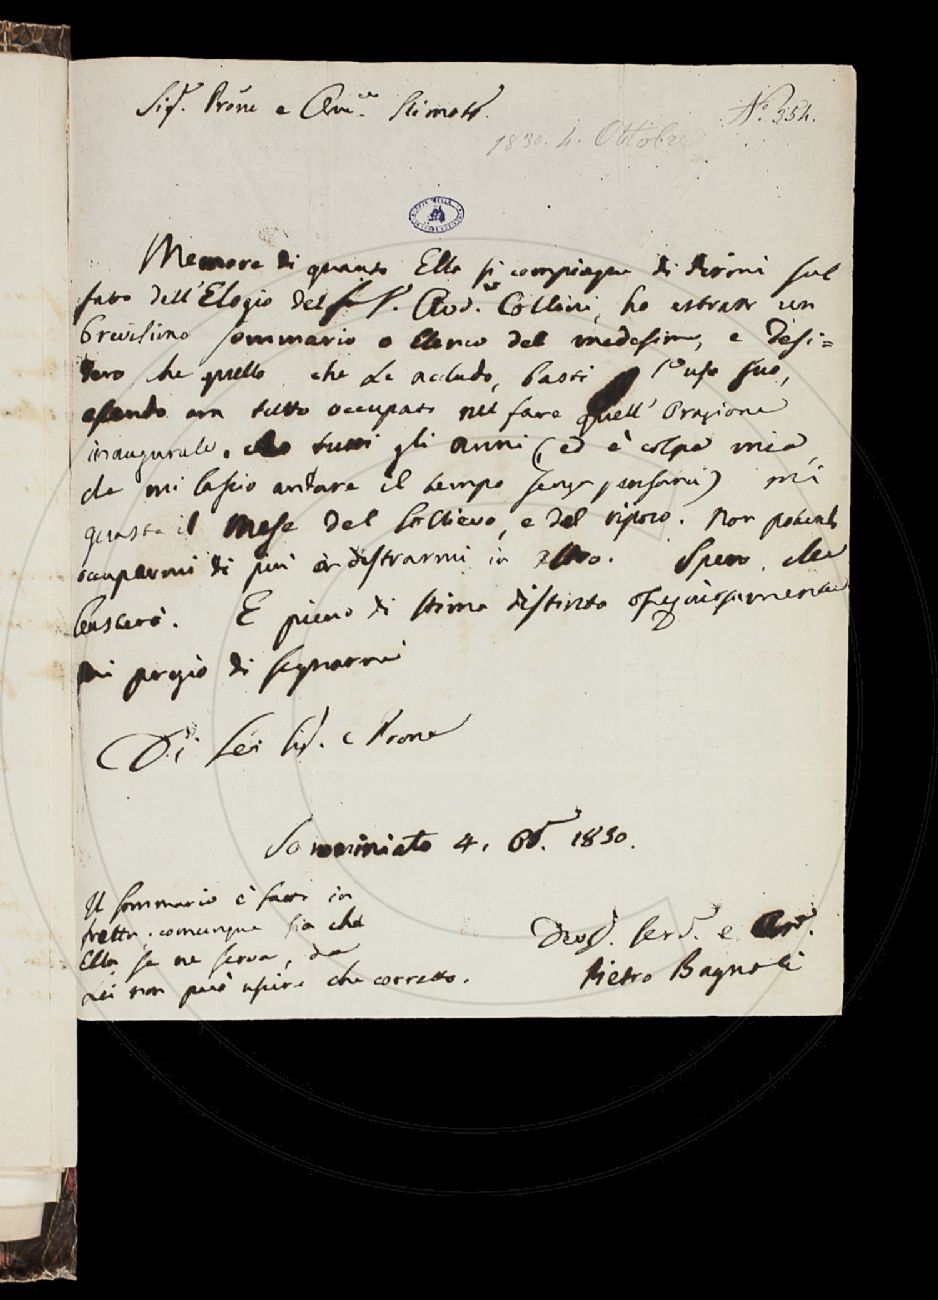 Sig.r Prone e Am.co Stimatt.
N.o 354.
1830. 4. Ottobre
Memore di quanto Ella si compiacque di dirmi sul
fatto dell'Elogio del S.r Aud.r Collini, ho estratto un
brevissimo sommario o Elenco del medesimo, e desi=
dero che quello che Le accludo, basti l'uso suo,
essendo ora tutto occupato nel fare quell'Orazione
inaugurale, che tutti gli anni (ed è colpa mia,
che mi lascio andare il tempo senza pensarci) mi
guasta il Mese del sollievo, e del riposo. Non potendo
occuparmi di più e distrarmi in altro. Spero, che
basterà. E pieno di stima distinta ossequiosamente
mi pregio di segnarmi
Di Lei Sig. e Prone
Samminiato 4. Ott. 1830.
Il sommario è fatto in
fretta, comunque sia che
Ella se ne serva, da
Lei non può uscire che corretto.
Dev. Serv. e Am.
Pietro Bagnoli